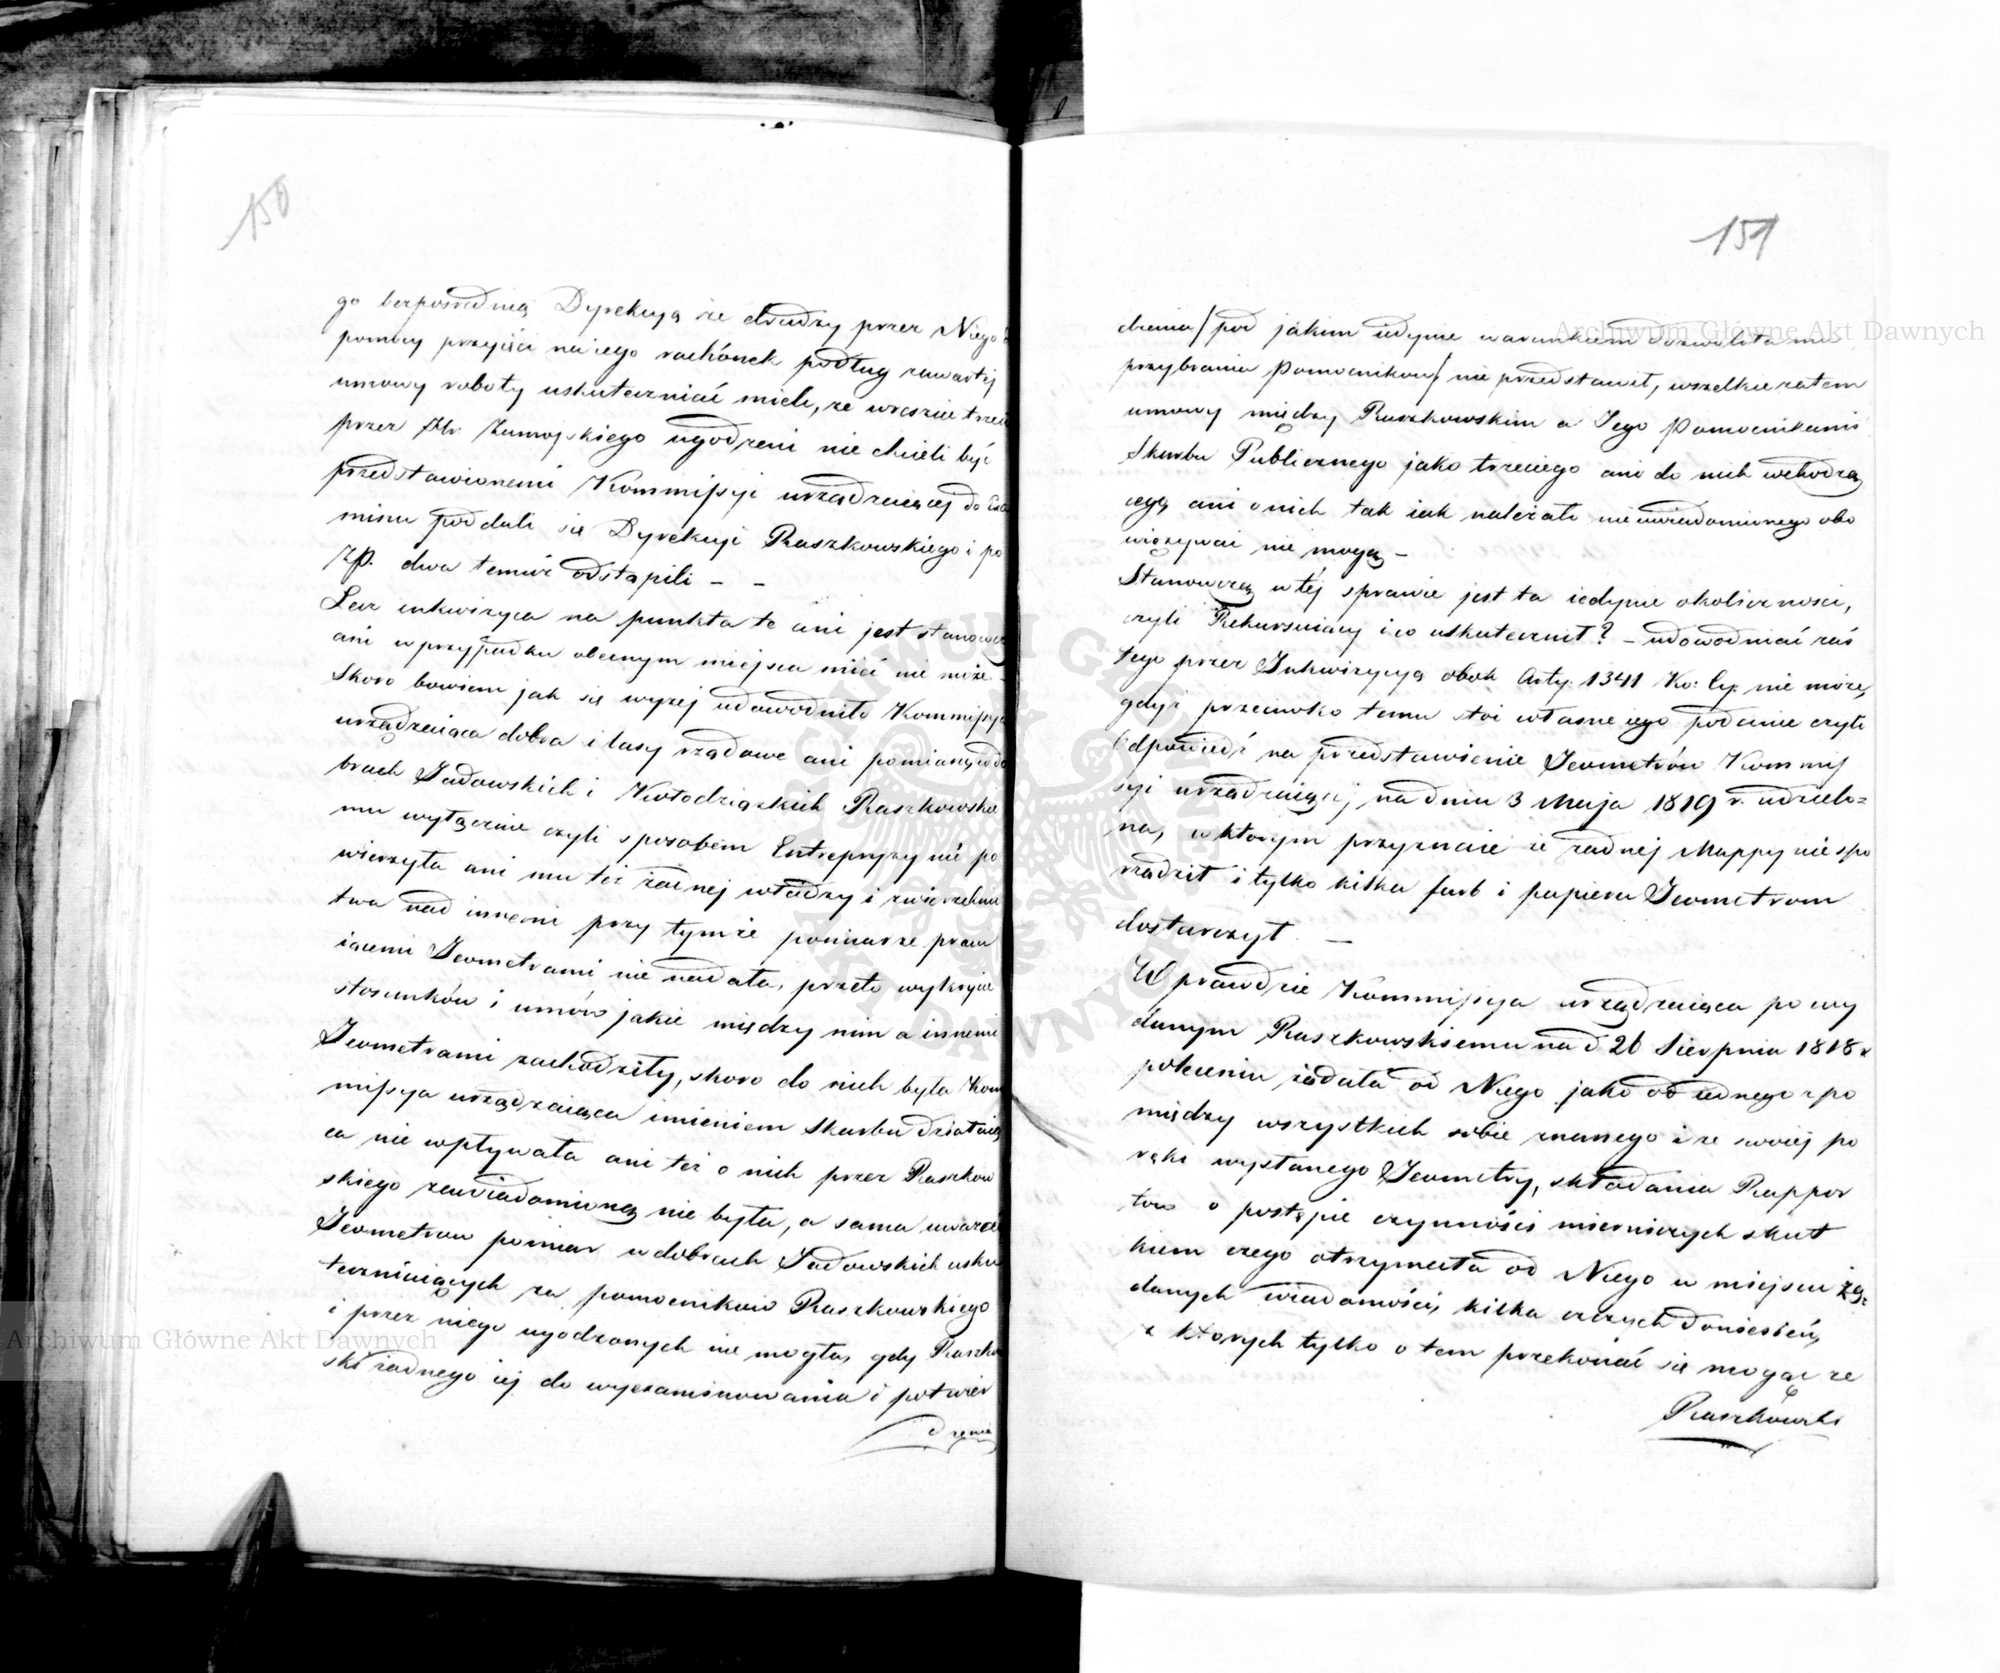 150
go bezpośrednią Dyrekcyą że drudzy przez Niego do
pomocy przyjęci na iego rachónek podług zawartej
umowy roboty uskuteczniać mieli, że wreszcie trzeci
przez Hr. Zamoyskiego ugodzeni nie chcieli być
przedstawionemi Kommissyi urządzaiącej do Exa
minu poddali się Dyrekcyi Raszkowskiego i po
zp. dwa temuż odstąpili – –
Lecz inkwizyca na punkta te ani jest stanowczą
ani w przypadku obecnym miejsca mieć nie może –
Skoro bowiem jak się wyżej udowodniło Kommissya
urządzaiąca dobra i lasy rządowe ani pomiarów w do
brach Jadowskich i Kołodziązkich Raszkowskie
mu wyłącznie czyli sposobem Entrepryzy nie po
wierzyła ani mu też żadnej władzy i zwierzchni
twa nad innemi przy tymże pomiarze pracu
iącemi Jeometrami nie nadała, przeto wykrycie
stosunków i umów jakie między nim a innemi
Jeometrami zachodziły, skoro do nich była Kom
missya urządzaiąca imieniem Skarbu działaią
ca nie wpływała ani też o nich przez Raszkow
skiego zawiadomioną nie była, a sama uważać
Jeometrow pomiar w dobrach Jadowskich usku
teczniaiących za pomocnikow Raszkowskiego
i przez niego ugodzonych nie mogła, gdy Raszkow
ski żadnego iej do wyexaminowania i potwier
dzenia
151
dzenia/ pod jakim iedynie warunkiem dozwoliła mu
przybrania Pomocnikow/ nie przedstawił, wszelkie zatem
umowy między Raszkowskim a Jego Pomocnikami
Skarbu Publicznego jako trzeciego ani do nich wchodzą
cego ani o nich tak iak należało nieuwiadomionego obo
wiązywać nie mogą –
Stanowczą w téj sprawie jest ta iedynie okoliczność,
czyli Rekursuiący i co uskutecznił? – udowodniać zaś
tego przez Inkwizycyą obok Arty. 1341 Ko: Cy: nie może,
gdyż przeciwko temu stoi własne iego podanie czyli
Odpowiedź na przedstawienie Jeometrów Kommis
syi urządzaiącej na dniu 3 Maja 1819 r. udzielo=
na, w którym przyznaie że żadnej Mappy nie spo
rządził i tylko kilka farb i papieru Jeometrom
dostarczył. –
W prawdzie Kommissya urządzaiąca po wy
danym Raszkowskiemu na d 26 Sierpnia 1818 r
poleceniu żądała od Niego jako od iednego z po
między wszystkich sobie znanego i ze swoiej po
ręki wysłanego Jeometry, składania Rappor
tow o postępie czynności mierniczych skut
kiem czego otrzymała od Niego w miejscu żą=
danych wiadomości, kilka czczych doniesień,
z ktorych tylko o tem przekonać się mogąc że
Raszkowski
Archiwum Główne Akt Dawnych
Archiwum Główne Akt Dawnych
ARCHIWUM GŁÓWNE AKT DAWNYCH